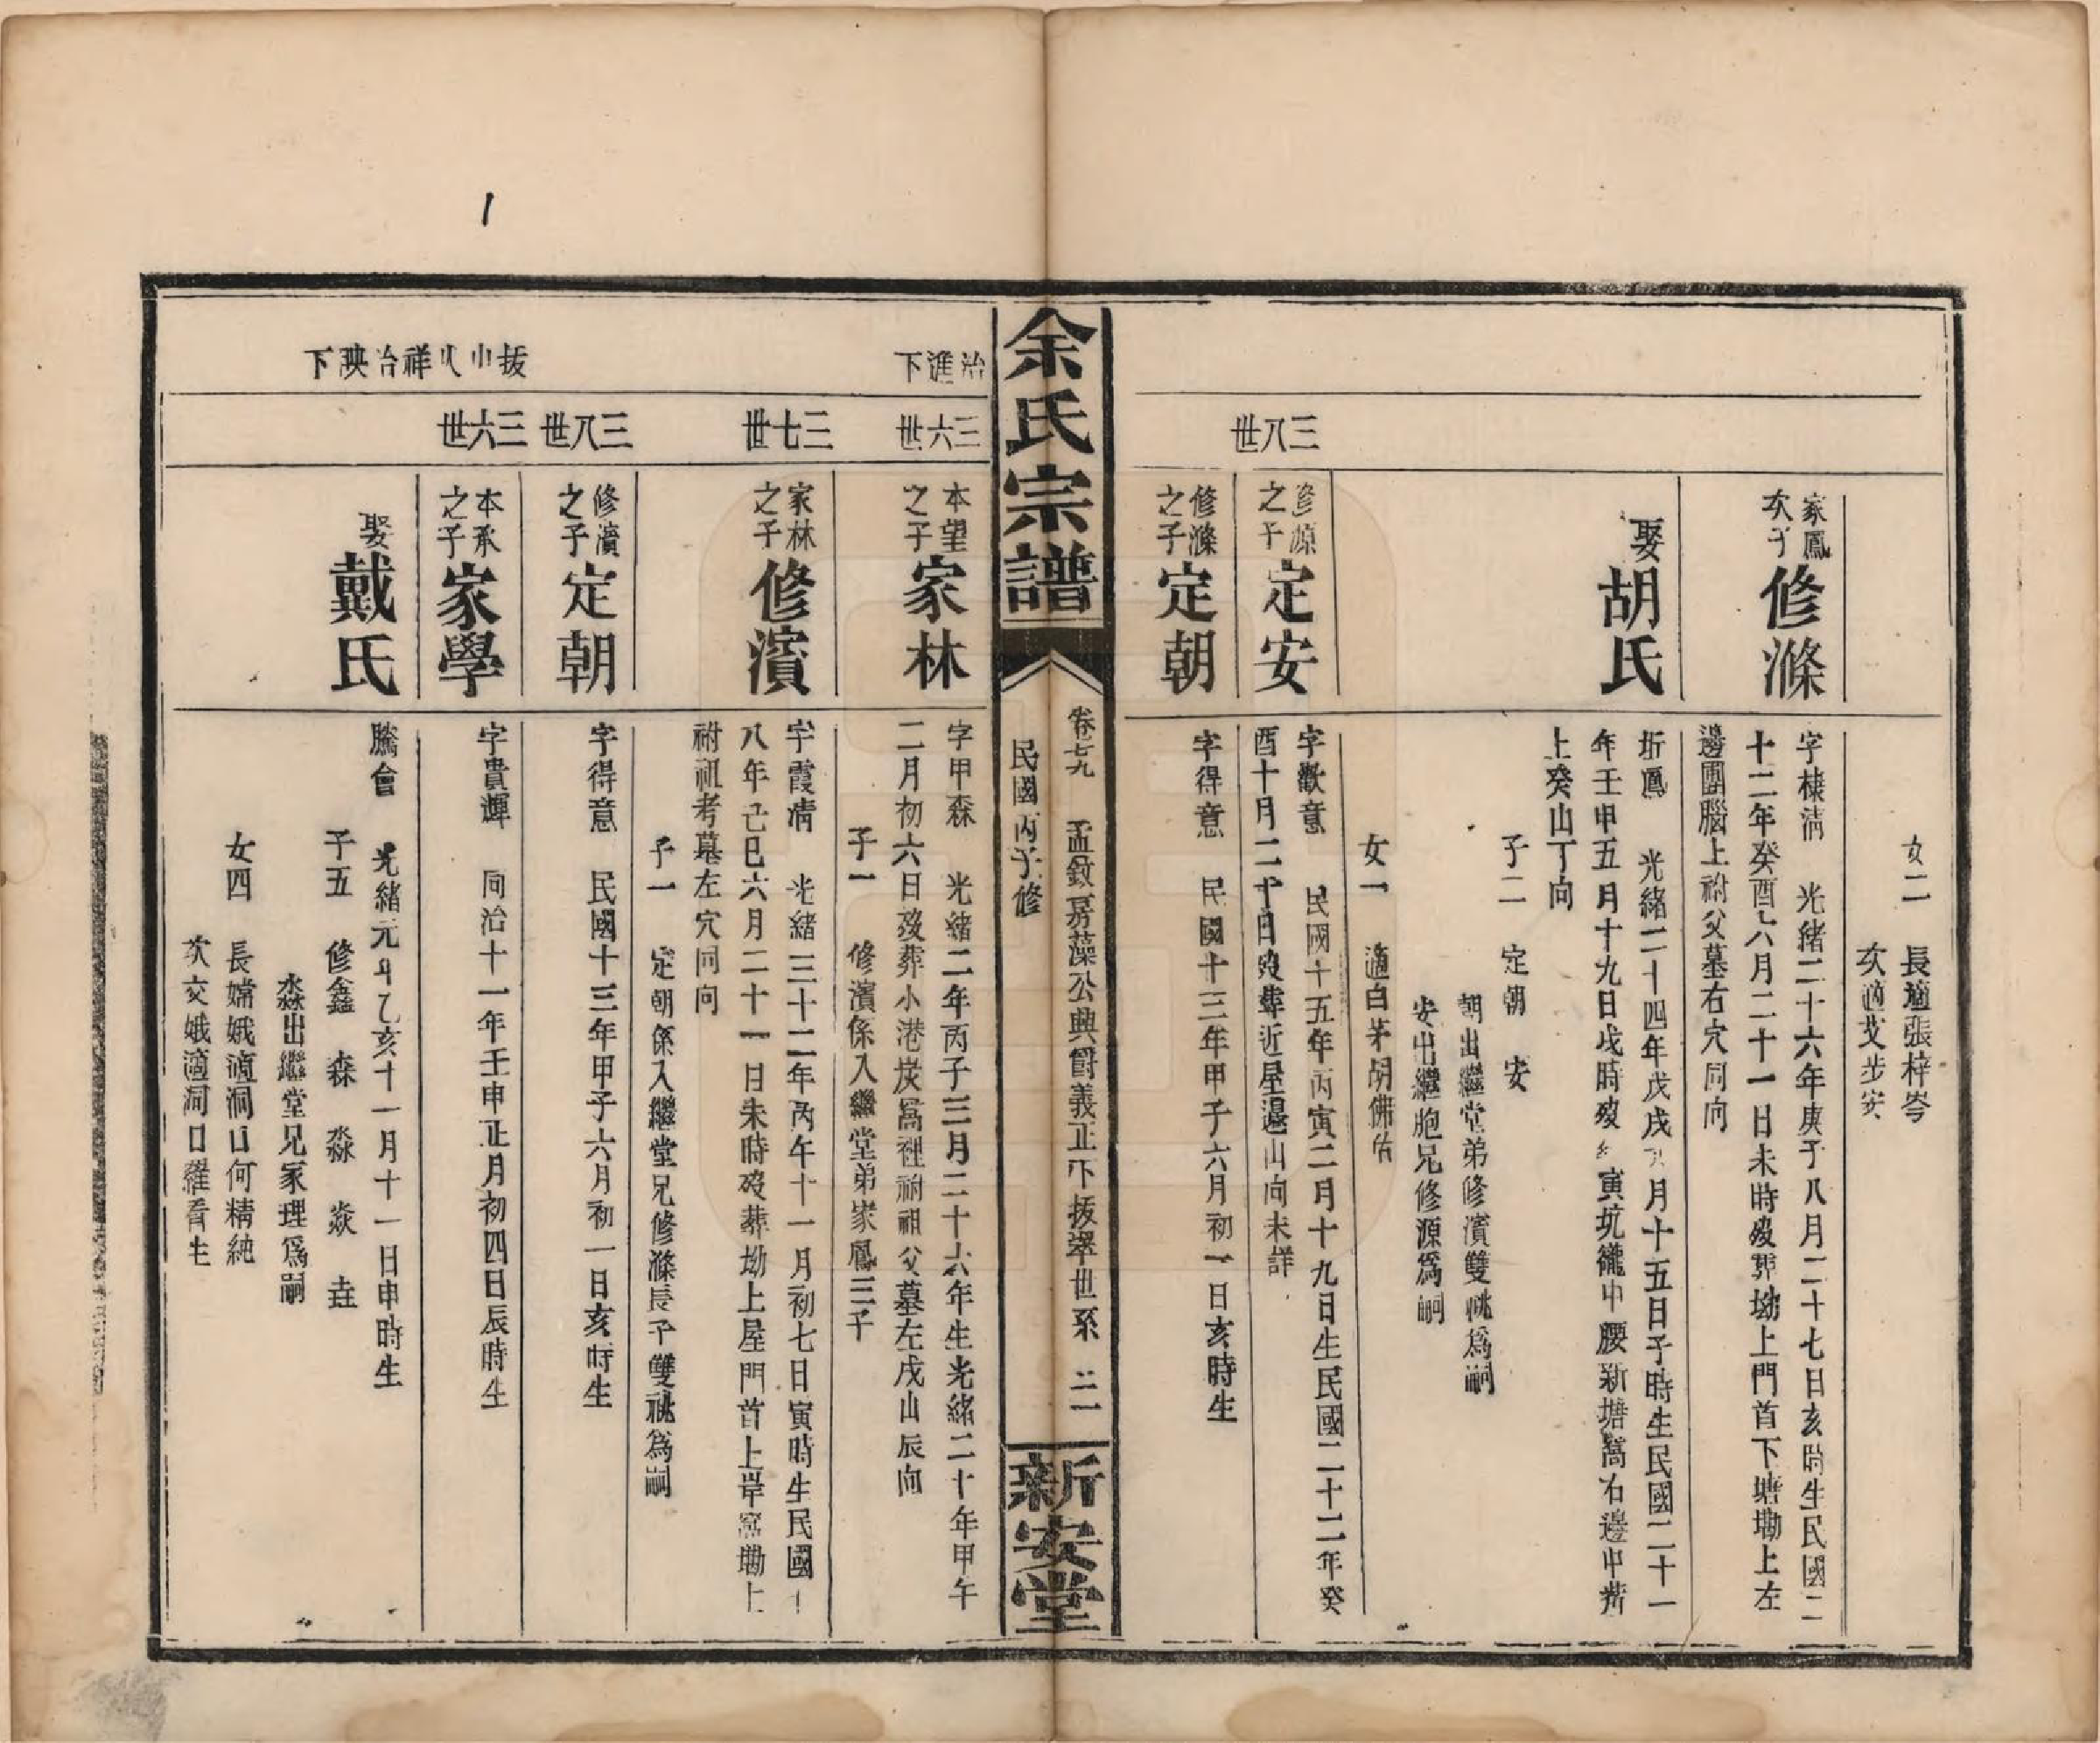 女二 長適張梓岑
次適艾步安
家鳳次子 修滌
字棣清 光緒二十六年庚子八月二十七日亥時生民國二
十二年癸酉六月二十一日未時歿葬坳上門首下塘墈上左
邊團腦上祔父墓右穴同向
娶 胡氏
圻鳳 光緒二十四年戊戌 月十五日子時生民國二十一
年壬申五月十九日戌時歿 寅坑徿中腰新塘窩右邊中
上癸山丁向
子二 定朝 安
朝出繼堂弟修濱雙祧爲嗣
安出繼胞兄修源爲嗣
女一 適白茅胡佛佑
三八世
修源之子 定安
字歡意 民國十五年丙寅二月十九日生民國二十二年癸
酉十月二十日歿葬近屋邊山向未詳
修滌之子 定朝
字得意 民國十三年甲子六月初一日亥時生
余氏宗譜
卷七九 孟敘房藻公典爵義正下拔翠世系 二
民國丙子修
新安堂
治進下
三六世
本望之子 家林
字甲森 光緒二年丙子三月二十六年生光緒二十年甲午
二月初六日歿葬小港炭窩裡祔祖父墓左戌山辰向
子一 修濱係入繼堂弟家鳳三子
三七世
家林之子 修濱
字霞清 光緒三十二年丙午十一月初七日寅時生民國十
八年己巳六月二十一日未時歿葬坳上屋門首上岸窩墈上
祔祖考墓左穴同向
子一 定朝係入繼堂兄修滌長子雙祧爲嗣
三八世
修濱之子 定朝
字得意 民國十三年甲子六月初一日亥時生
拔 祥治映下
三六世
本承之子 家學
字貴輝 同治十一年壬申正月初四日辰時生
娶 戴氏
騰會 光緒元年乙亥十一月十一日申時生
子五 修鑫 森 淼 焱 垚
淼出繼堂兄家理爲嗣
女四 長嫦娥適洞口何精純
次交娥適洞口羅看生